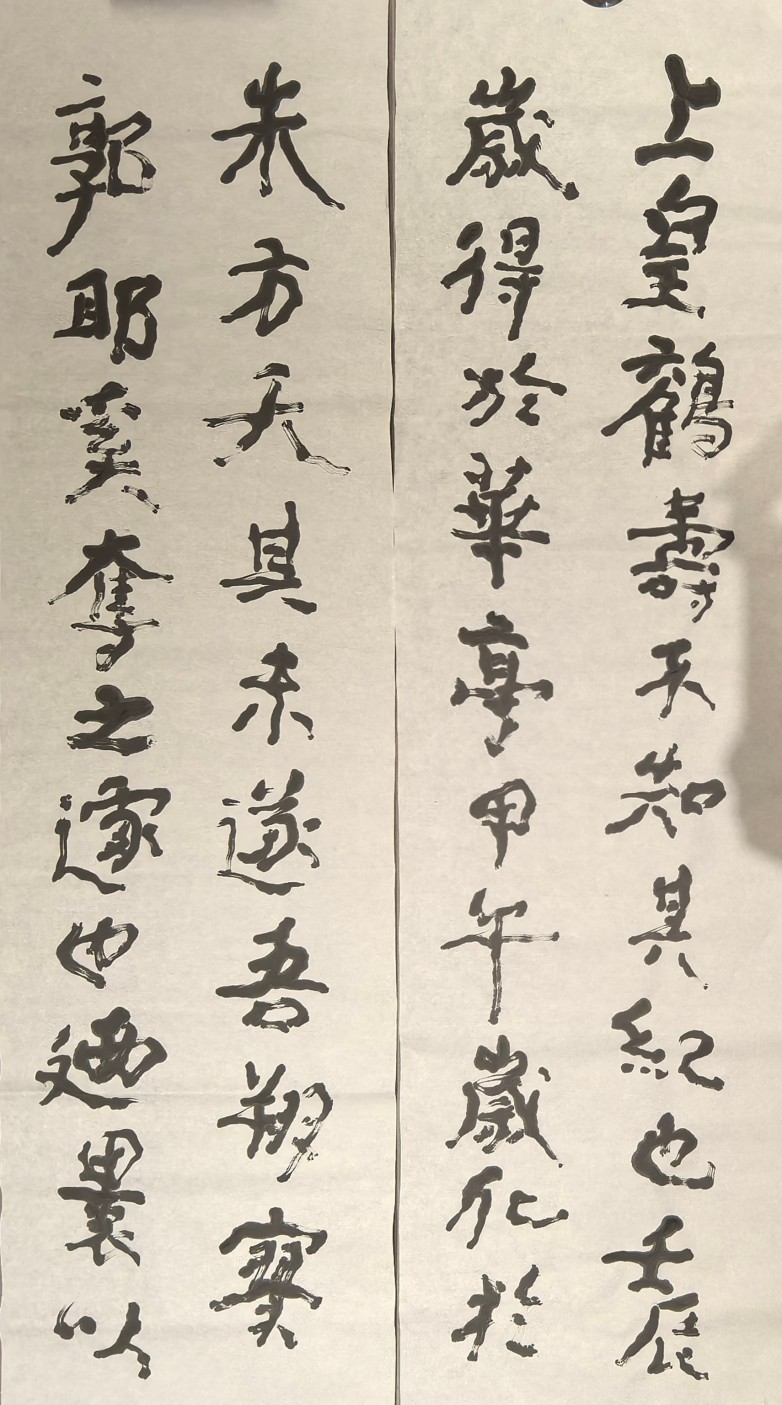 上皇鶴壽不知其紀也壬辰
歲得於華亭甲午歲化於
朱方天其未遂吾翔寥
郭耶奚奪之遽也廼裹以